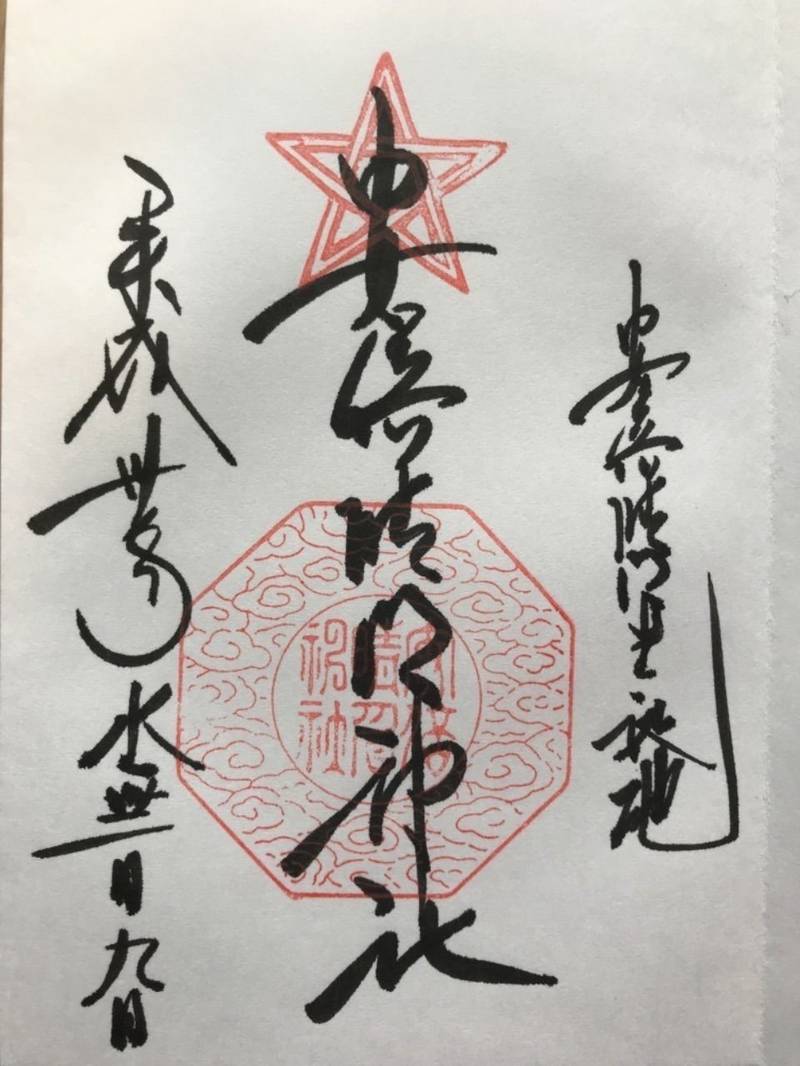 安倍晴明生誕地
安倍晴明神社
安倍
晴明
神社
平成卅年水無月九日